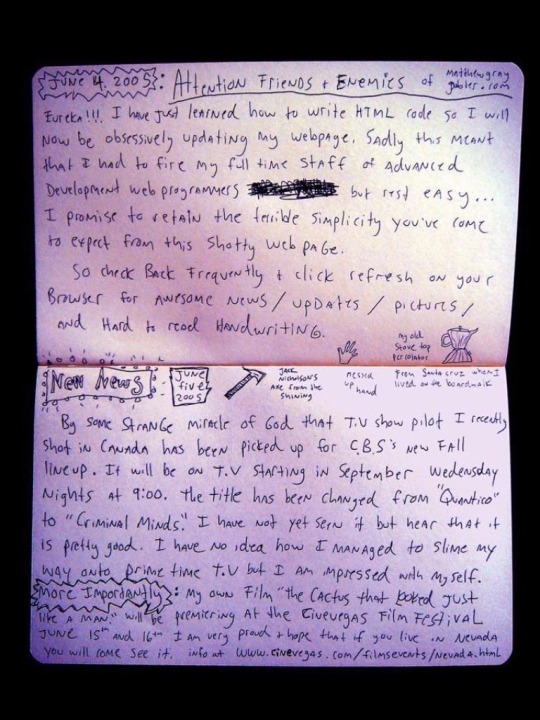 JUNE 4, 2005: Attention Friends + Enemies of matthewgray
gubler.com
Eureka!!! I have just learned how to write HTML code so I will
now be obsessively updating my webpage. Sadly this meant
that I had to fire my full time staff of Advanced
Development web programmers but rest easy...
I promise to retain the terrible simplicity you've come
to expect from this shotty web page.
So check Back Frequently + click refresh on your
Browser for Awesome News/updates/pictures/
and Hard to read HANDWRITING.
my old
stove top
percolator
from Santa cruz when I
lived on the boardwalk
messed
up hand
JACK
NICHOLSON'S
AXE FROM THE
SHINING
New News
JUNE
five
2005
By some strange miracle of God that T.V show pilot I recently
shot in Canada has been picked up for C.B.S's new Fall
lineup. It will be on T.V starting in September Wedensday
Nights at 9:00. the title has been changed from "Quantico"
to "Criminal Minds." I have not yet seen it but hear that it
is pretty good. I have no idea how I managed to slime my
way onto prime time T.V but I am impressed with myself.
More Importantly: my own Film "the Cactus that looked Just
like a man." will be premiering at the Cinevegas Film Festival
June 15th and 16th I am very proud + hope that if you live in Nevada
you will come see it. info at www.cinevegas.com/filmsevents/nevada.html